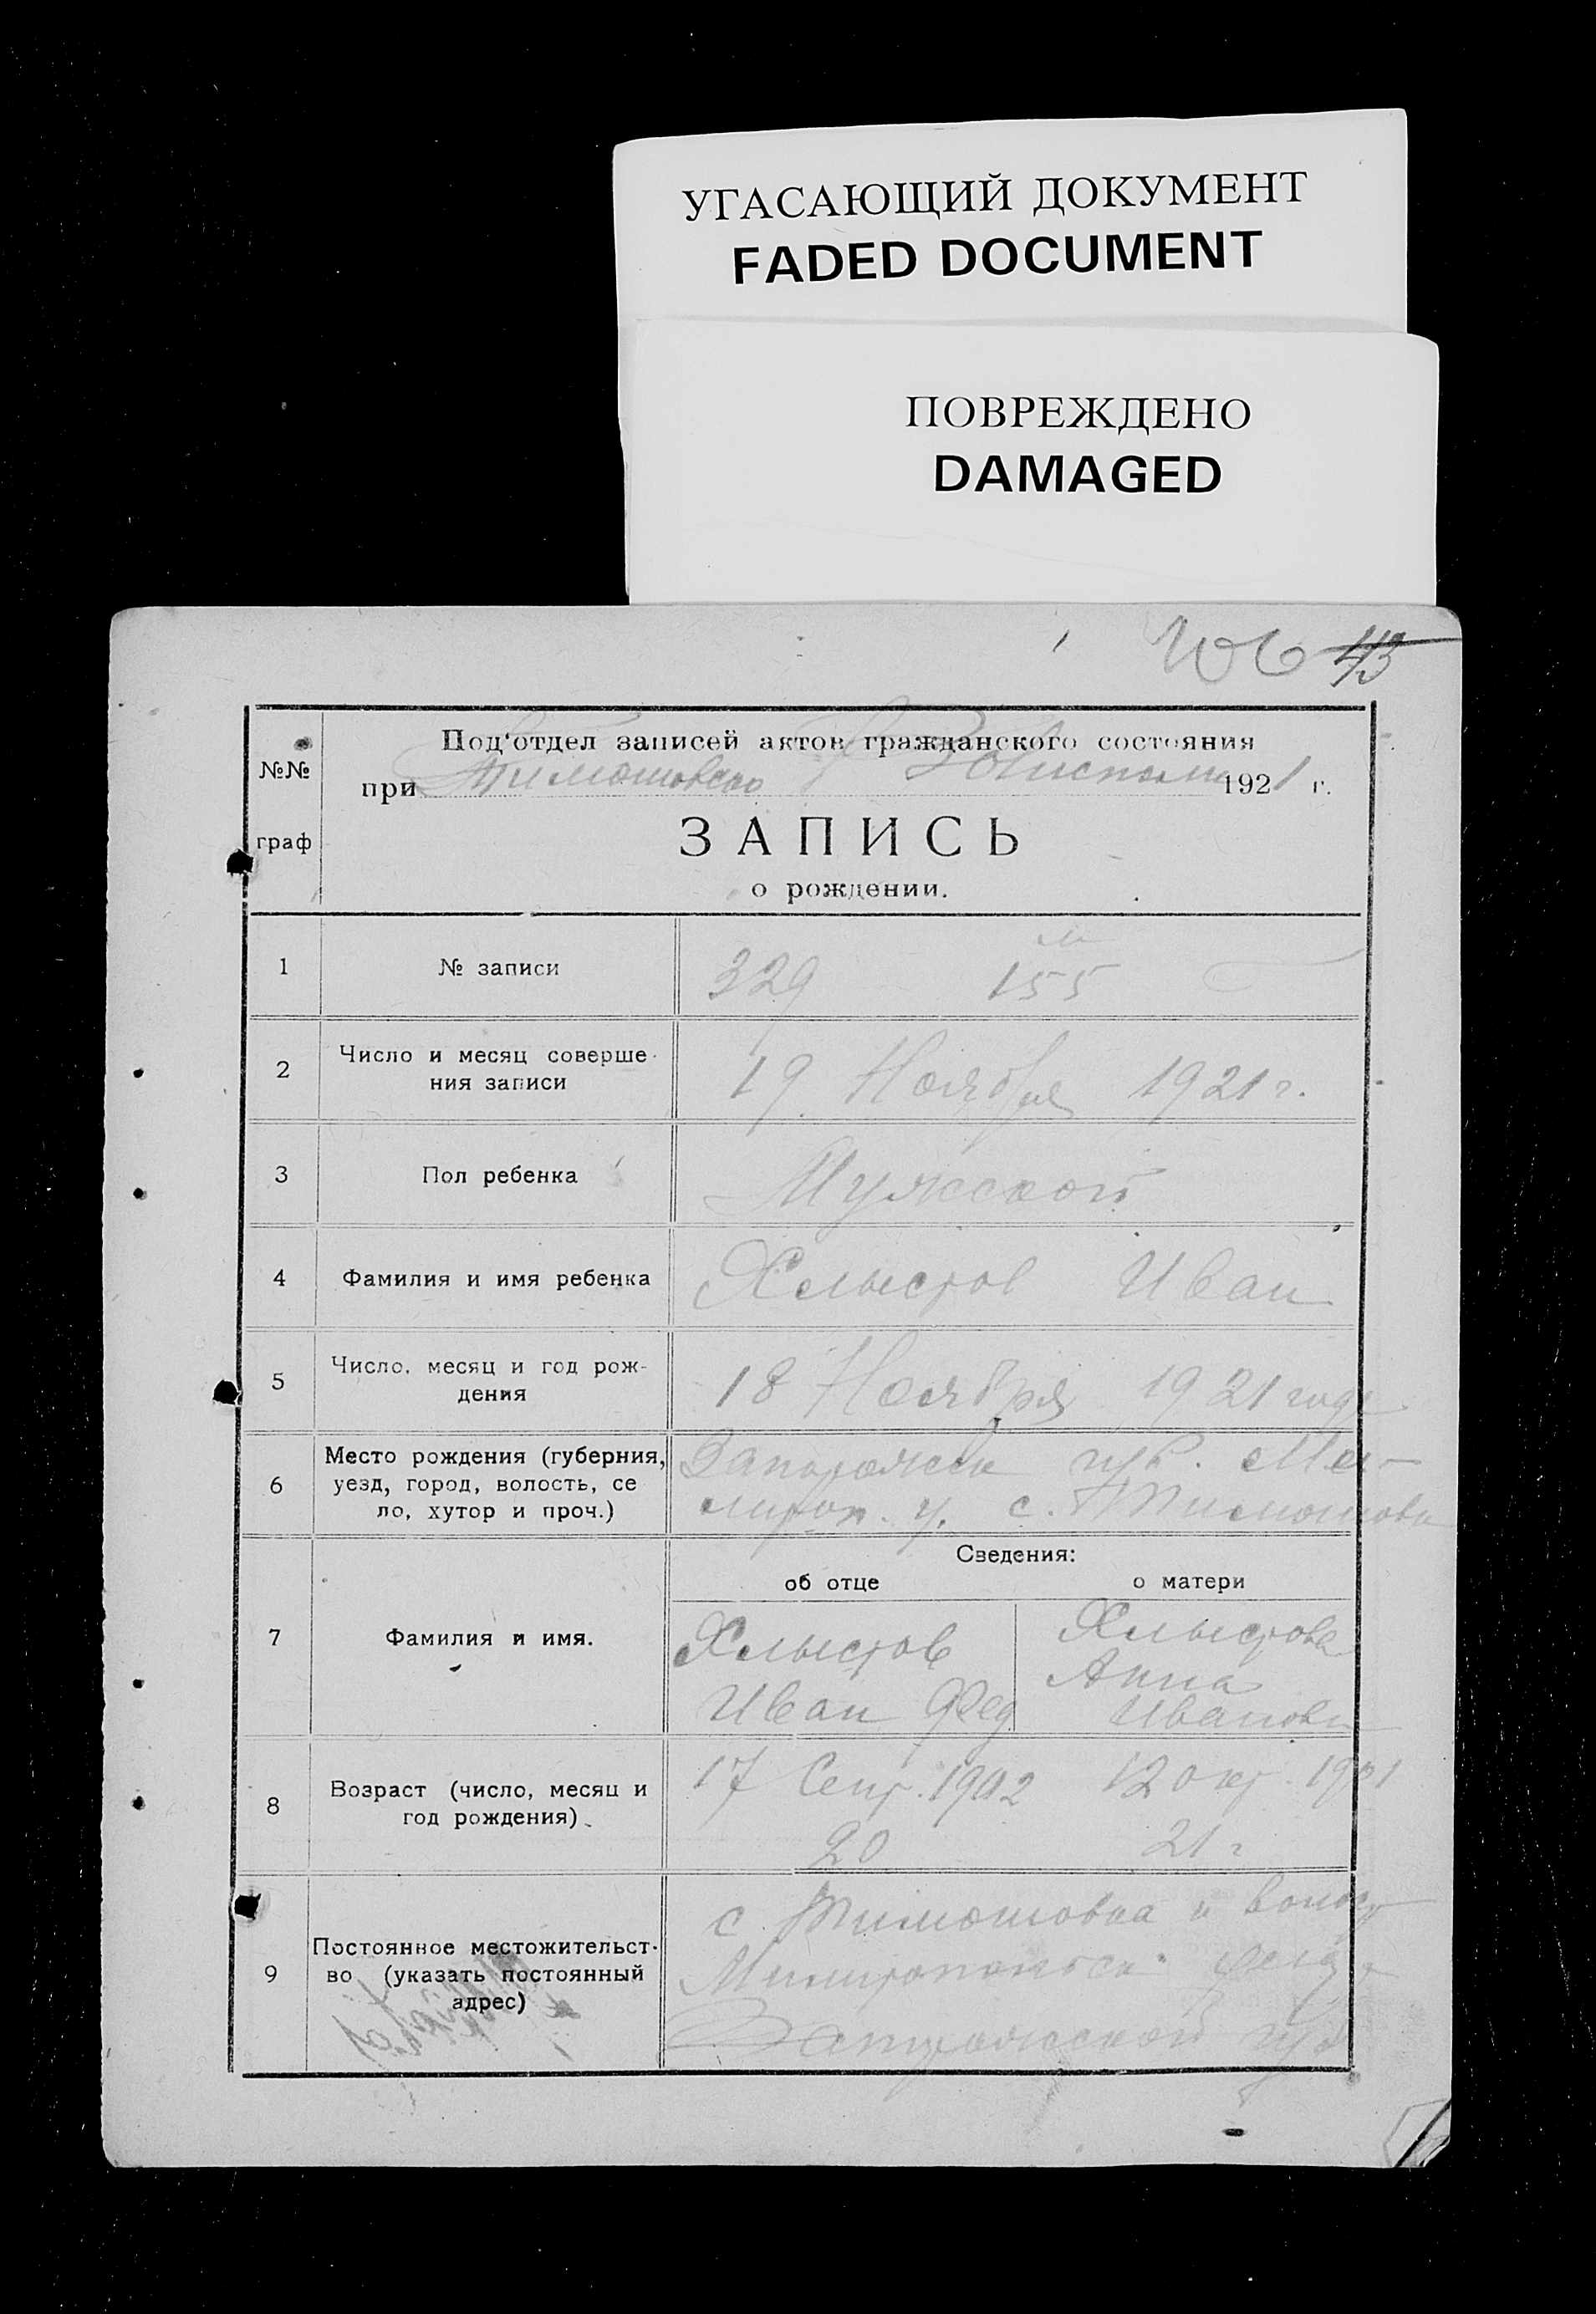 УГАСАЮЩИЙ ДОКУМЕНТ
FADED DOCUMENT
ПОВРЕЖДЕНО
DAMAGED
106 43
№№
граф
Под'отдел записей актов гражданского состояния
при Тимошовско Волисполк 1921 г.
ЗАПИСЬ
о рождении.
1 № записи 329 м 155
2 Число и месяц соверше-
ния записи
19 Ноября 1921 г.
3 Пол ребенка Мужской
4 Фамилия и имя ребенка Хлыстов Иван
5 Число, месяц и год рож-
дения
18 Ноября 1921 года
6 Место рождения (губерния,
уезд, город, волость, се
ло, хутор и проч.)
Запорожск губ. Ме-
литоп. у. с. Тимошовка
Сведения:
об отце о матери
7 Фамилия и имя.
Хлыстов
Иван Фед
Хлыстова
Анна
Иванова
8 Возраст (число, месяц и
год рождения)
17 Сент. 1902
20
12 окт. 1901
21 г
9 Постоянное местожительст-
во (указать постоянный
адрес)
с. Тимошовка и волост
Мелитопольск уезда
Запорожской губ